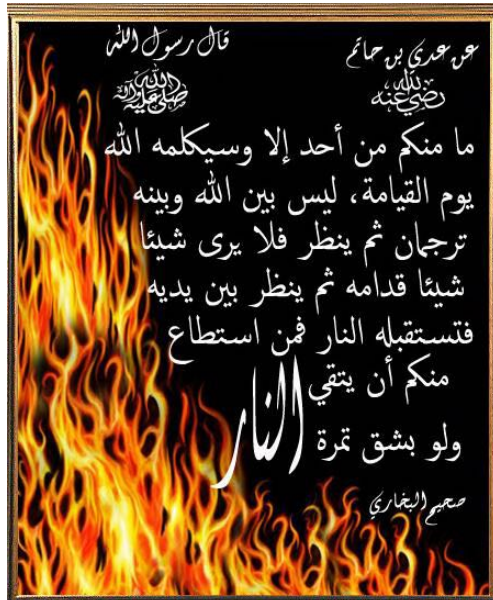 عن عدي بن حاتم
رضي الله عنه
قال رسول الله
صلى الله عليه وآله
ما منكم من أحد إلا وسيكلمه الله
يوم القيامة، ليس بين الله وبينه
ترجمان ثم ينظر فلا يرى شيئا
شيئا قدامه ثم ينظر بين يديه
فتستقبله النار فمن استطاع
منكم أن يتقي النار
ولو بشق تمرة
صحيح البخاري